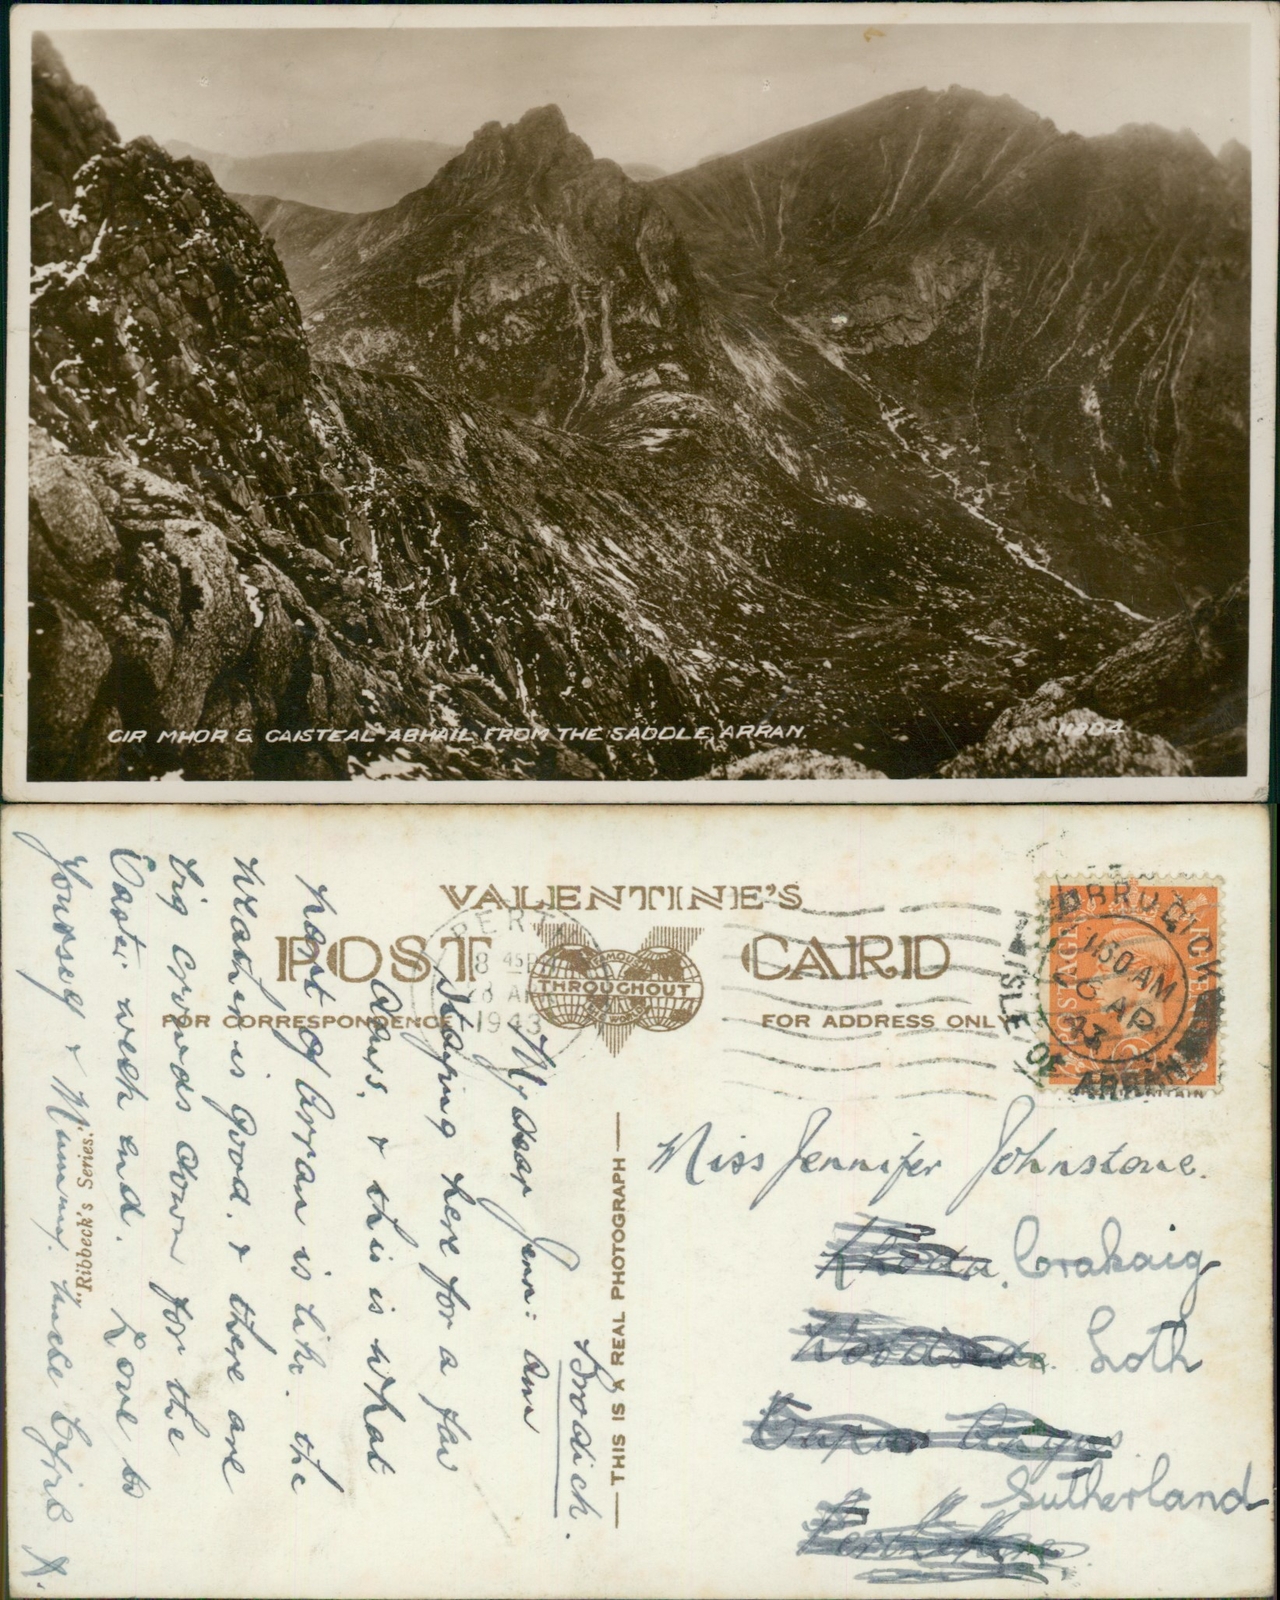 CIR MHOR & CAISTEAL ABHAIL FROM THE SADDLE, ARRAN.
11804
VALENTINE'S
POST CARD
FAMOUS
THROUGHOUT
THE WORLD
FOR CORRESPONDENCE
FOR ADDRESS ONLY
PERTH
8 45 PM
8 AP
1943
BRODICK
11 50 AM
6 AP
43
ISLE OF ARRAN
POSTAGE
Brodick.
My dear Jenn: am
staying here for a few
days, & this is what
part of Arran is like. the
weather is good. & there are
big crowds down for the
Easter week end. Love to
yourself & Mummy. Uncle
X.
"Ribbeck's Series."
THIS IS A REAL PHOTOGRAPH
Miss Jennifer Johnstone.
Crakaig
Loth
Sutherland